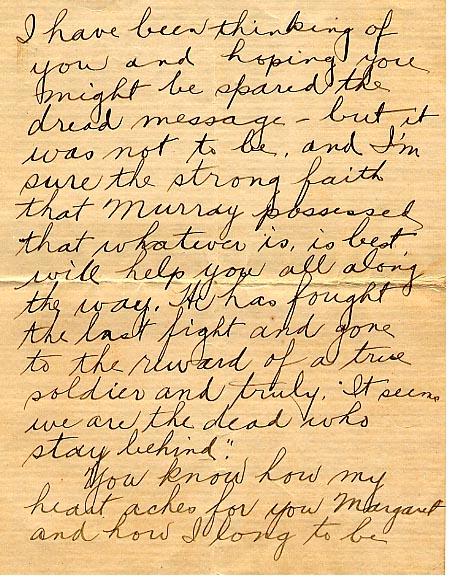 I have been thinking of
you and hoping you
might be spared the
dread message - but it
was not to be, and I'm
sure the strong faith
that Murray possessed
that whatever is, is best
will help you all along
the way. He has fought
the last fight and gone
to the reward of a true
soldier and truly, "It seems
we are the dead who
stay behind".
You know how my
heart aches for you Margaret
and how I long to be